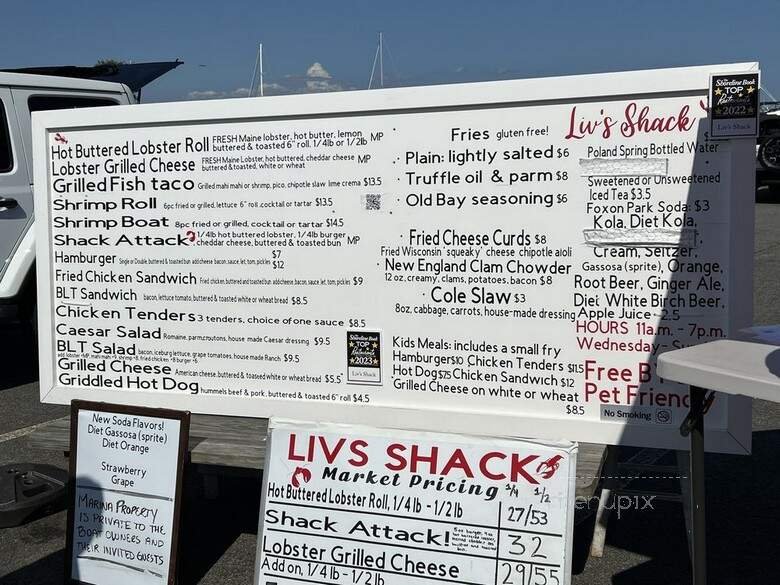 Hot Buttered Lobster Roll FRESH Maine lobster, hot butter, lemon
buttered & toasted 6" roll. 1/4lb or 1/2lb MP
Lobster Grilled Cheese FRESH Maine Lobster, hot buttered, cheddar cheese MP
buttered & toasted, white or wheat
Grilled Fish taco Grilled mahi mahi or shrimp, pico, chipotle slaw lime crema $13.5
Shrimp Roll 6pc fried or grilled, lettuce 6" roll, cocktail or tartar $13.5
Shrimp Boat 8pc fried or grilled, cocktail or tartar $14.5
Shack Attack 1/4lb hot buttered lobster, 1/4lb burger
cheddar cheese, buttered & toasted bun MP
Hamburger Single or Double, buttered & toasted bun add cheese bacon, sauce, let, tom, pickles $7
$12
Fried Chicken Sandwich Fried chicken, buttered and toasted bun add cheese, bacon, sauce, let, tom, pickles $9
BLT Sandwich bacon, lettuce tomato, buttered & toasted white or wheat bread $8.5
Chicken Tenders 3 tenders, choice of one sauce $8.5
Caesar Salad Romaine, parm, croutons, house made Caesar dressing $9.5
BLT Salad bacon, iceberg lettuce, grape tomatoes, house made Ranch $9.5
add lobster +MP, mahi mahi +9, shrimp +8, fried chicken +8 burger +6
Grilled Cheese American cheese, buttered & toasted white or wheat bread $5.5
Griddled Hot Dog hummels beef & pork, buttered & toasted 6" roll $4.5
Shoreline Book
TOP
Restaurants
2023
Liv's Shack
Fries gluten free!
· Plain: lightly salted $6
· Truffle oil & parm $8
· Old Bay seasoning $6
· Fried Cheese Curds $8
Fried Wisconsin 'squeaky' cheese chipotle aioli
· New England Clam Chowder
12 oz, creamy, clams, potatoes, bacon $8
· Cole Slaw $3
8oz, cabbage, carrots, house-made dressing
Kids Meals: includes a small fry
Hamburger $10 Chicken Tenders $11.5
Hot Dog $7.5 Chicken Sandwich $12
Grilled Cheese on white or wheat
$8.5
Liv's Shack
Shoreline Book
TOP
Restaurants
2022
Liv's Shack
Poland Spring Bottled Water
Sweetened or Unsweetened
Iced Tea $3.5
Foxon Park Soda: $3
Kola, Diet Kola,
Cream, Seltzer,
Gassosa (sprite), Orange,
Root Beer, Ginger Ale,
Diet White Birch Beer,
Apple Juice - 2.5
HOURS 11a.m. - 7p.m.
Wednesday -
Free B
Pet Frienc
No Smoking
New Soda Flavors!
Diet Gassosa (sprite)
Diet Orange
Strawberry
Grape
MARINA PROPERTY
IS PRIVATE TO THE
BOAT OWNERS AND
THEIR INVITED GUESTS
LIVS SHACK
Market Pricing 1/4 1/2
Hot Buttered Lobster Roll, 1/4 lb - 1/2 lb 27/53
Shack Attack! 32
Lobster Grilled Cheese 29/55
Add on, 1/4 lb - 1/2 lb
menupix